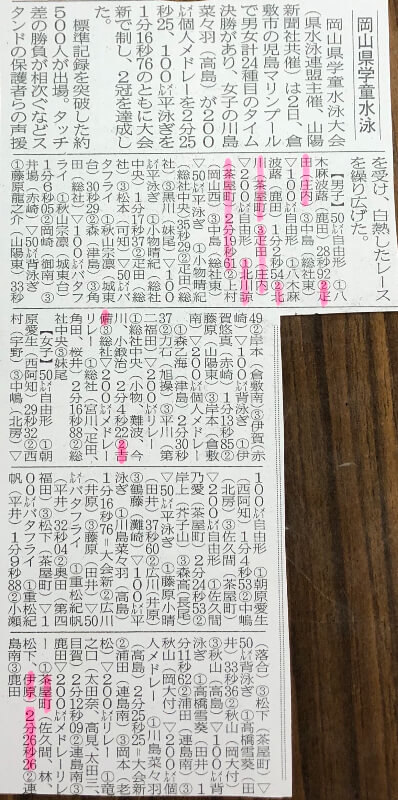 岡山県学童水泳
岡山県学童水泳大会
(県水泳連盟主催、山陽
新聞社共催)は2日、倉
敷市の児島マリンプール
で男女計24種目のタイム
決勝があり、女子の川島
菜々羽(高島)が200
㍍個人メドレーを2分25
秒25、100㍍平泳ぎを
1分16秒76のともに大会
新で制し、2冠を達成し
た。
標準記録を突破した約
500人が出場。タッチ
差の勝負が相次ぐなどス
タンドの保護者らの声援
を受け、白熱したレース
を繰り広げた。
【男子】▽50㍍自由形 ①八
木麻波蕗(鹿田)28秒92②疋
田(庄内)
▽100㍍自由形 ①八木麻
波蕗(鹿田)1分2秒54②花
▽200㍍自由形 ①北川諒
(茶屋町)2分19秒61②上村
(岡山西)③中島(総社東)
▽50㍍平泳ぎ ①小物晴紀
(総社中央)35秒29②疋田(総
社)③黒川(妹尾)▽100
㍍平泳ぎ ①小物晴紀(総社
中央)1分17秒37②疋田(総
社)③松本(可知)▽50㍍バ
タフライ ①秋山宗凛(城東
台)30秒29②森(津島)③角
田(総社)▽100㍍バタフ
ライ ①秋山宗凛(城東台)
1分6秒05②岡崎(御南)③
井場(赤崎)▽50㍍背泳ぎ
①藤原龍之介(山陽東)33秒
49②岸本(倉敷南)③伊賀(赤
崎)▽100㍍背泳ぎ ①伊
賀悠真(赤崎)1分13秒85②
藤原(山陽東)③岸本(倉敷
南)▽200㍍個人メドレー
①森乙海(津島)2分30秒
37②力石(旭操)③平川(第
二福田)▽200㍍リレー
①総社中央(小物、難波、今
川、小鍛治)2分4秒22②吉
備③総社▽200㍍メドレー
リレー ①総社(宮川、疋田、
角田、桜井)2分16秒88②総
社中央③妹尾
【女子】▽50㍍自由形 ①朝
原愛生(西阿知)29秒32②西
村(宇野)③中嶋(北房)▽
100㍍自由形 ①朝原愛生
(西阿知)1分4秒53②中嶋
(北房)③佐久間(茶屋町)
▽200㍍自由形 ①佐久間
乃愛(茶屋町)2分24秒53②
岸上(芥子山)③森高(長尾)
▽50㍍平泳ぎ ①藤原小晴
(田井)37秒60②広川(井原)
③鶴藤(灘崎)▽100㍍平
泳ぎ ①川島菜々羽(高島)
1分16秒76=大会新②広川
(井原)③藤原(田井)▽50
㍍バタフライ ①重松紀帆
(平井)32秒04②奥田(第四
福田)③松下(茶屋町)▽1
00㍍バタフライ ①重松紀
帆(平井)1分9秒88②小瀬
(落合)③松下(茶屋町)▽
50㍍背泳ぎ ①高橋雪葵(田
井)33秒36②秋山(岡大付)
③秋山(高島)▽100㍍背
泳ぎ ①高橋雪葵(田井)1
分11秒62②浦田(連島南)③
秋山(岡大付)▽200㍍個
人メドレー ①川島菜々羽
(高島)2分25秒25=大会新
②浦田(連島南)③岡本(老
松)▽200㍍リレー ①竜
之口(太田奈、高見、太田三、
目賀)2分12秒09②連島南③
鹿田▽200㍍メドレーリレ
ー ①茶屋町(佐久間、林、
松下、伊原)2分26秒26②連
島南③鹿田